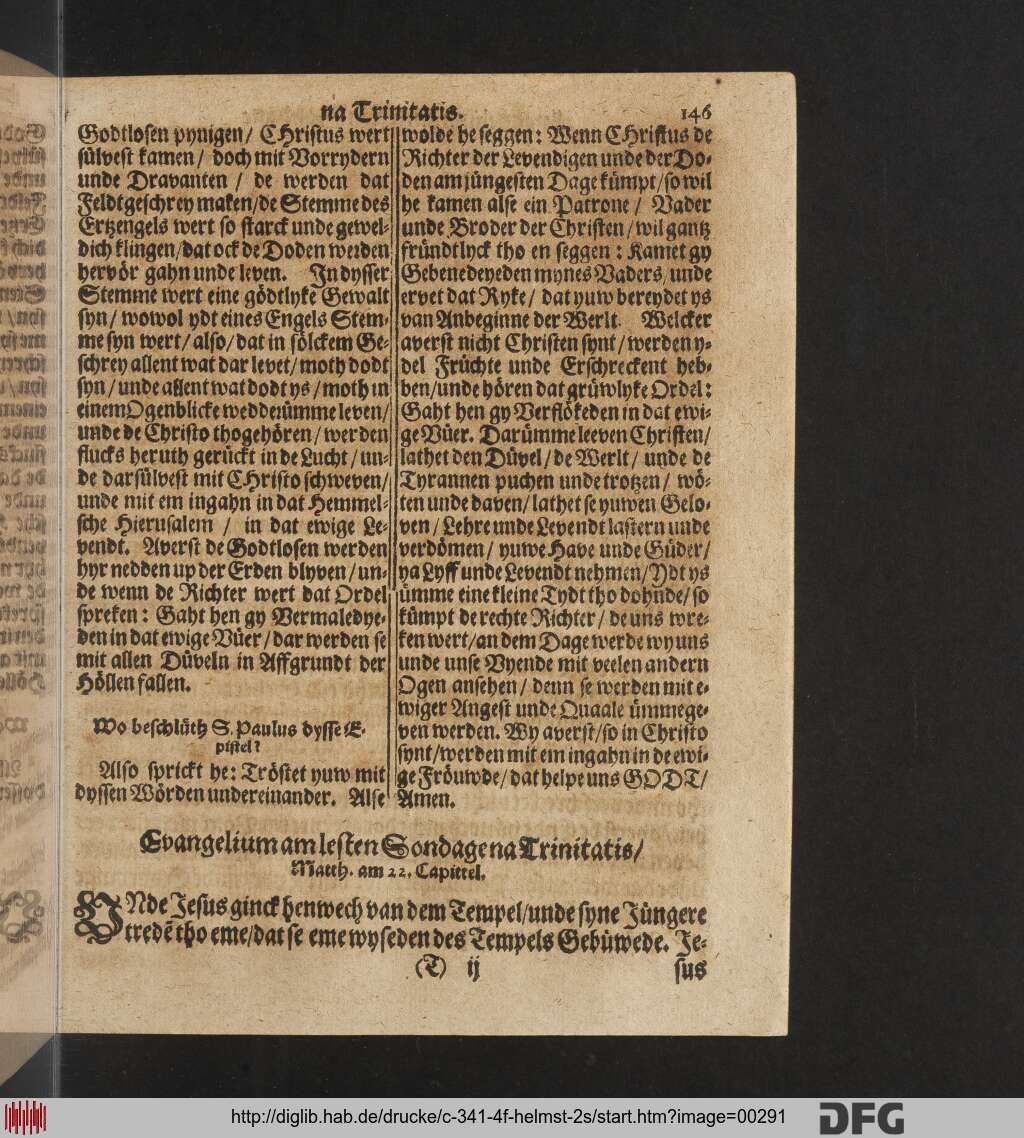 na Trinitatis.
146
Godtlosen pynigen/ CHristus wert
sülvest kamen/ doch mit Vorrydern
unde Dravanten / de werden dat
Feldtgeschrey maken/de Stemme des
Ertzengels wert so starck unde gewel-
dich klingen/dat ock de Doden werden
hervör gahn unde leven. In dysser
Stemme wert eine gödtlyke Gewalt
syn/ wowol ydt eines Engels Stem-
me syn wert/also/dat in sölckem Ge-
schrey allent wat dar levet/moth dodt
syn/unde allent wat dodt ys/moth in
einem Ogenblicke wedderümme leven/
unde de Christo thogehören/werden
flucks heruth gerückt in de Lucht/un-
de darsülvest mit CHristo schweven/
unde mit em ingahn in dat Hemmel-
sche Hierusalem / in dat ewige Le-
vendt. Averst de Godtlosen werden
hyr nedden up der Erden blyven/un-
de wenn de Richter wert dat Ordel
spreken: Gaht hen gy Vermaledye-
den in dat ewige Vüer/dar werden se
mit allen Düveln in Affgrundt der
Höllen fallen.
Wo beschlüth S. Paulus dysse E-
pistel?
Also sprickt he: Tröstet yuw mit
dyssen Wörden undereinander. Alse
wolde he seggen: Wenn CHristus de
Richter der Levendigen unde der Do-
den am jüngesten Dage kümpt/so wil
he kamen alse ein Patrone/ Vader
unde Broder der Christen/wil gantz
fründtlyck tho en seggen: Kamet gy
Gebenedeyeden mynes Vaders/unde
ervet dat Ryke/ dat yuw bereydet ys
van Anbeginne der Werlt. Welcker
averst nicht Christen synt/werden y-
del Früchte unde Erschreckent heb-
ben/unde hören dat grüwlyke Ordel:
Gaht hen gy Verflökeden in dat ewi-
ge Vüer. Darümme leeven Christen/
lathet den Düvel/de Werlt/ unde de
Tyrannen puchen unde trotzen/ wö-
ten unde daven/lathet se yuwen Gelo-
ven/Lehre unde Levendt lastern unde
verdömen/ yuwe Have unde Güder/
ya Lyff unde Levendt nehmen/Ydt ys
ümme eine kleine Tydt tho dohnde/so
kümpt de rechte Richter/de uns wre-
ken wert/an dem Dage werde wy uns
unde unse Vyende mit veelen andern
Ogen ansehen/ denn se werden mit e-
wiger Angest unde Quaale ümmege-
ven werden. Wy averst/so in Christo
synt/werden mit em ingahn in de ewi-
ge Fröuwde/dat helpe uns GODT/
Amen.
Evangelium am lesten Sondage na Trinitatis/
Matth. am 22. Capittel.
UNde Jesus ginck henwech van dem Tempel/unde syne Jüngere
tredē tho eme/dat se eme wyseden des Tempels Gebüwede. Je-
(T) ij
sus
http://diglib.hab.de/drucke/c-341-4f-helmst-2s/start.htm?image=00291
DFG